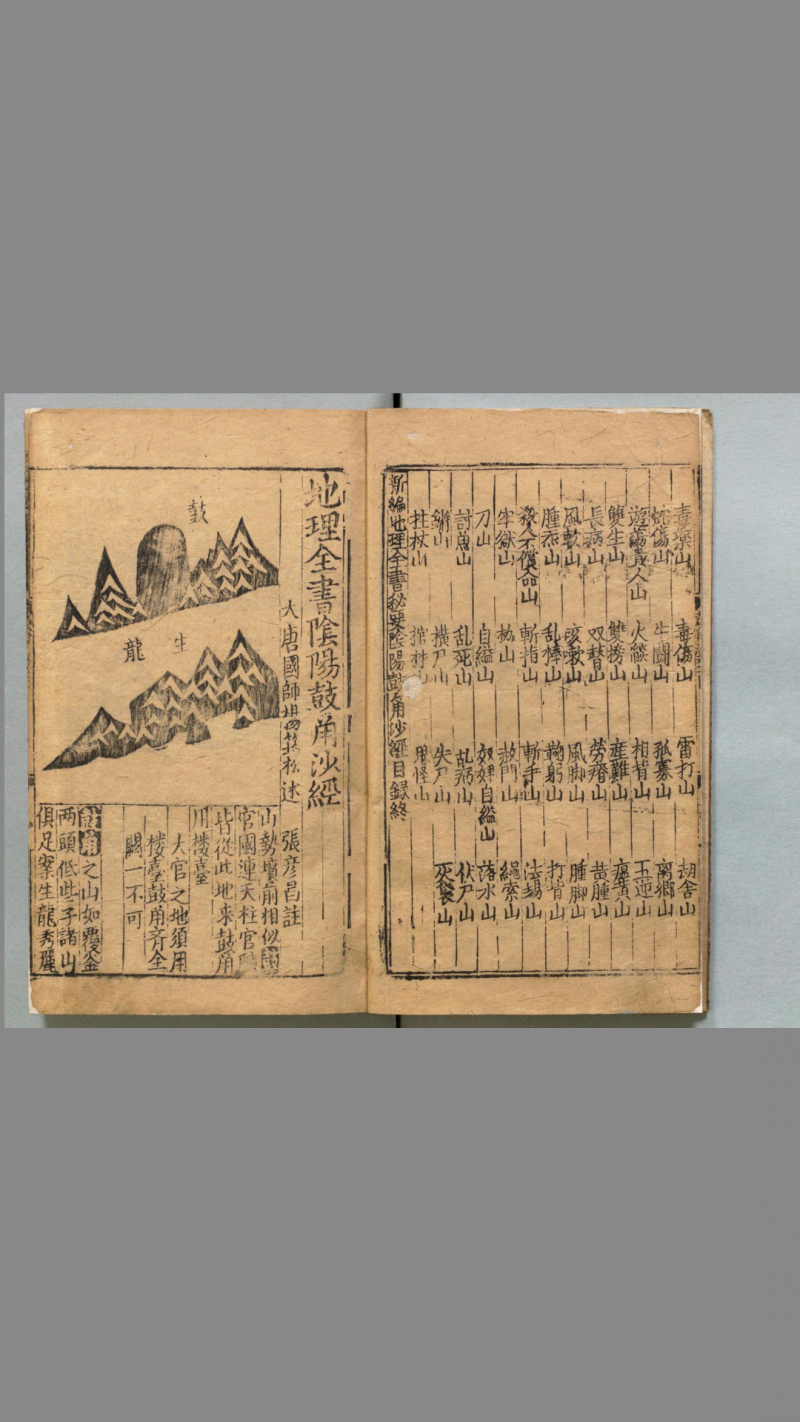 毒藥山 毒傷山 雷打山 劫舍山
蛇傷山 牛鬪山 孤寡山 离鄉山
遊蕩食人山 火緂山 相背山 五逆山
雙生山 雙榜山 産難山 瘟黄山
長病山 双瞽山 勞瘵山 黄腫山
風軟山 咳嗽山 風脚山 腫脚山
腫烝山 乱棒山 鞠躬山 打背山
殺人不償命山 斬指山 斬手山 法場山
牢獄山 枷山 赦門山 繩索山
刀山 自縊山 奴婢自縊山 落水山
討魚山 乱死山 乱病山 伏尸山
山 横尸山 失尸山 灾襲山
拄杖山 棺材山 鬼怪山
新編地理全書秘要陰陽鼓角沙經目録終
地理全書陰陽鼓角沙經
大唐國師楊筠松述
張彦昌註
鼓
生
龍
山勢墳前相似圖
官國連天柱官職
皆從此地來鼓角
用楼臺
大官之地須用
楼臺鼓角齊全
闕一不可
鼓角之山如覆釜
两頭低些子諸山
俱足案生龍秀麗